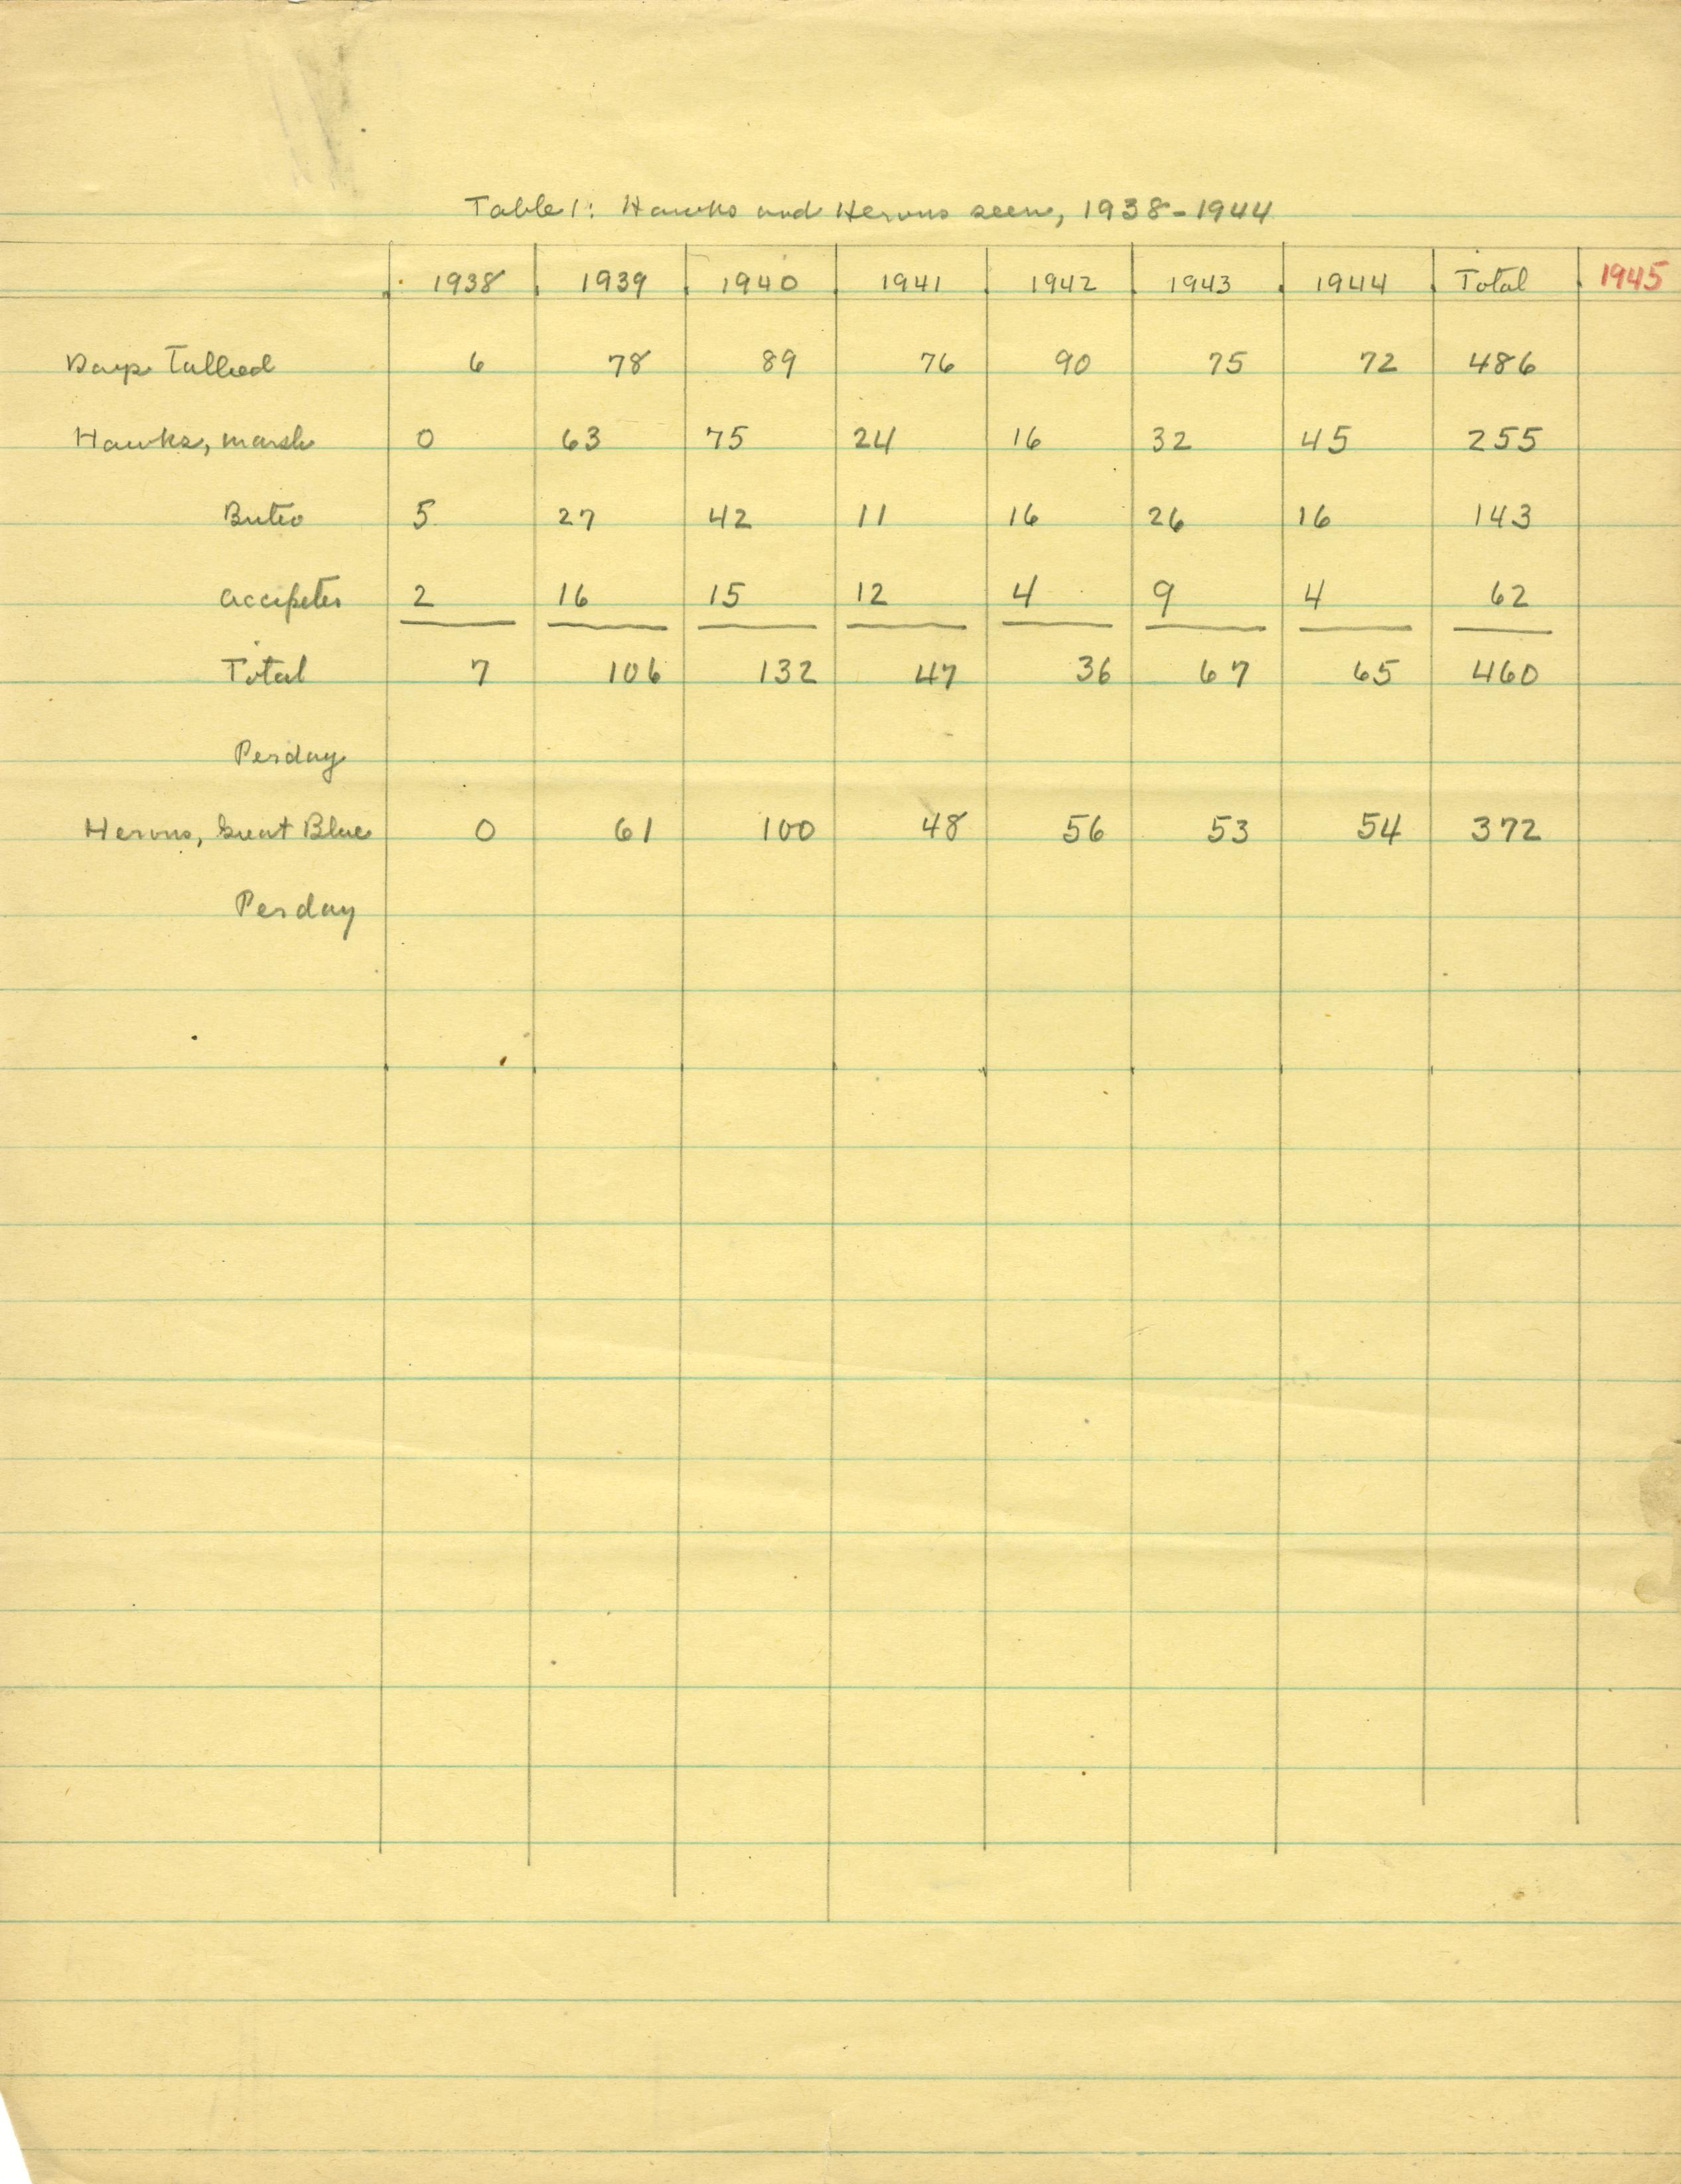 Table 1: Hawks and Herons seen, 1938-1944
1938 1939 1940 1941 1942 1943 1944 Total 1945
Days Tallied 6 78 89 76 90 75 72 486
Hawks, marsh 0 63 75 24 16 32 45 255
Buteo 5 27 42 11 16 26 16 143
accipeter 2 16 15 12 4 9 4 62
Total 7 106 132 47 36 67 65 460
Per day
Herons, Great Blue 0 61 100 48 56 53 54 372
Per day